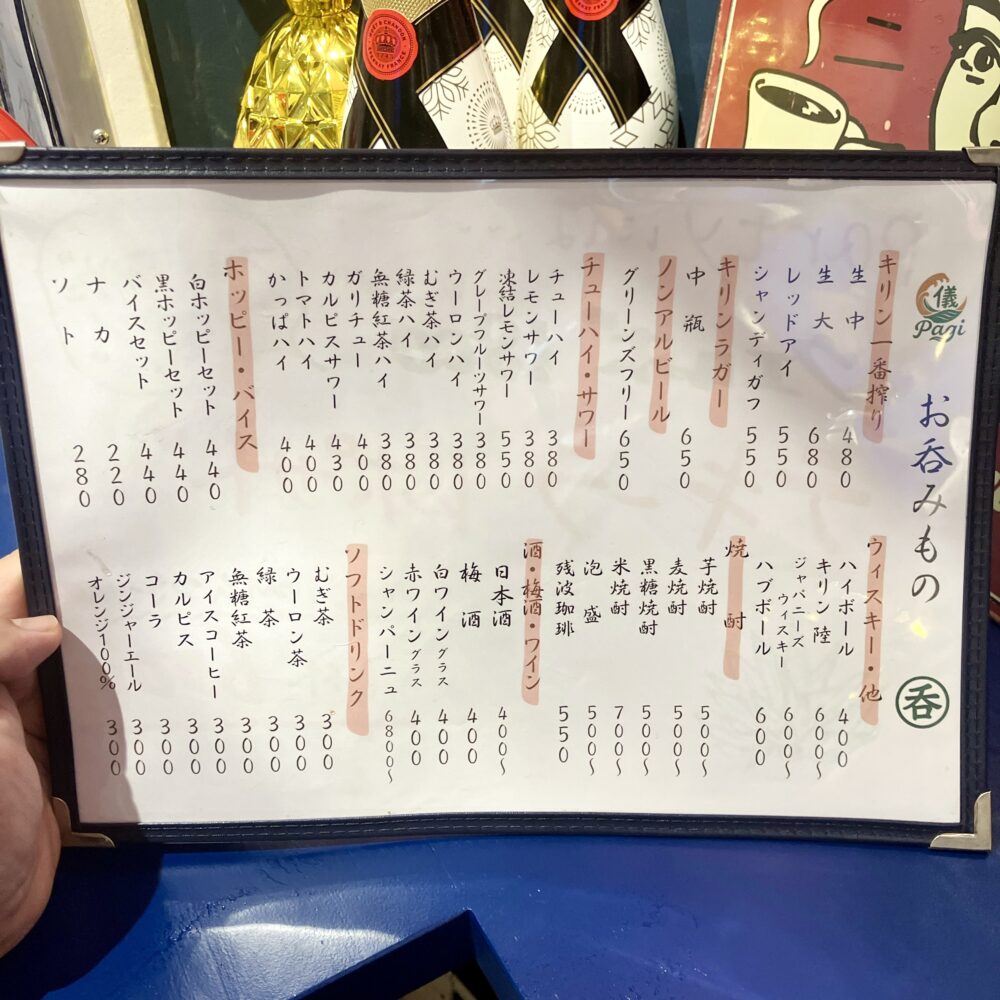 儀
Pagi
お呑みもの
呑
キリン一番搾り
生中 480
生大 680
レッドアイ 550
シャンディガフ 550
キリンラガー
中瓶 650
ノンアルビール
グリーンズフリー 650
チューハイ・サワー
チューハイ 380
レモンサワー 380
凍結レモンサワー 550
グレープフルーツサワー 380
ウーロンハイ 380
むぎ茶ハイ 380
緑茶ハイ 380
無糖紅茶ハイ 380
ガリチュー 400
カルピスサワー 430
トマトハイ 400
かっぱハイ 400
ホッピー・バイス
白ホッピーセット 440
黒ホッピーセット 440
バイスセット 440
ナカ 220
ソト 280
ウィスキー・他
ハイボール 400
キリン陸 600〜
ジャパニーズウィスキー 600〜
ハブボール 600
焼酎
芋焼酎 500〜
麦焼酎 500〜
黒糖焼酎 500〜
米焼酎 700
泡盛 500〜
残波珈琲 550
酒・梅酒・ワイン
日本酒 400〜
梅酒 400
白ワイングラス 400
赤ワイングラス 400
シャンパーニュ 6800〜
ソフトドリンク
むぎ茶 300
ウーロン茶 300
緑茶 300
無糖紅茶 300
アイスコーヒー 300
カルピス 300
コーラ 300
ジンジャーエール 300
オレンジ100% 300